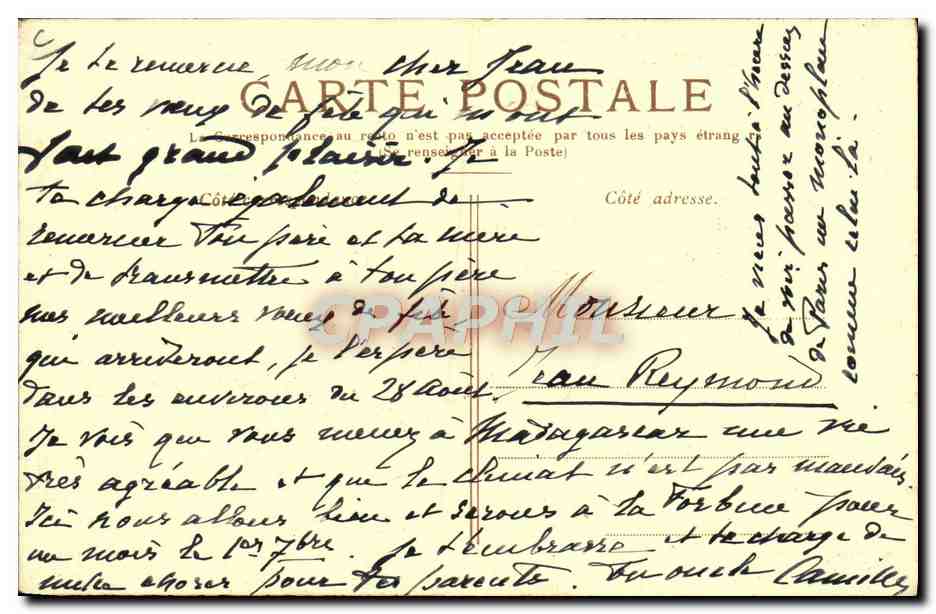 Je te remercie, mon cher Jean
CARTE POSTALE
de tes vœux de fête qui m'ont
La Correspondance au recto n'est pas acceptée par tous les pays étrang
(Se renseigner à la Poste)
fait grand plaisir. Je
te charge également de
Côté adresse.
remercier ton père et ta mère
et de transmettre à ton père
mes meilleurs vœux de fête
CPAPHIL
qui arriveront, je l'espère
dans les environs du 28 Août.
Monsieur
Jean Reymond
Je vois que vous menez à Madagascar une vie
très agréable et que le climat n'est pas mauvais.
Ici nous allons bien et serons à la pour
un mois le 1er 7bre. Je t'embrasse et te charge de
mille choses pour tes parents. Ton oncle Camille
Je viens tout à l'heure
de voir passer au dessus
de Paris un monoplan
comme celui-là.